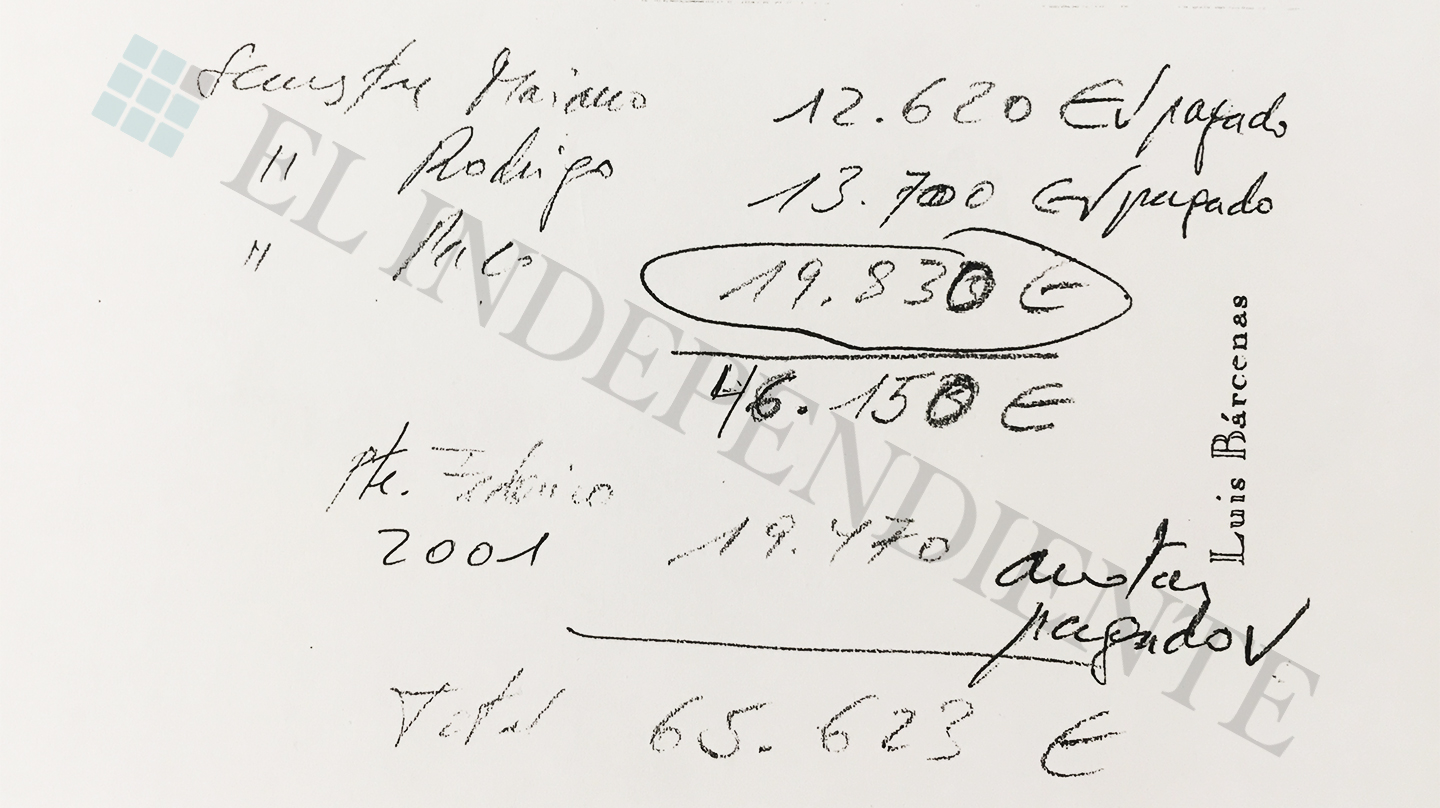 Semestre Mariano 12.620 € √ pagado
" Rodrigo 13.700 € √ pagado
" Paco 19.830 €
46.150 €
Pte. Federico
2001 19.470 anotar
pagado √
Total 65.623 €
Luis Bárcenas
EL INDEPENDIENTE